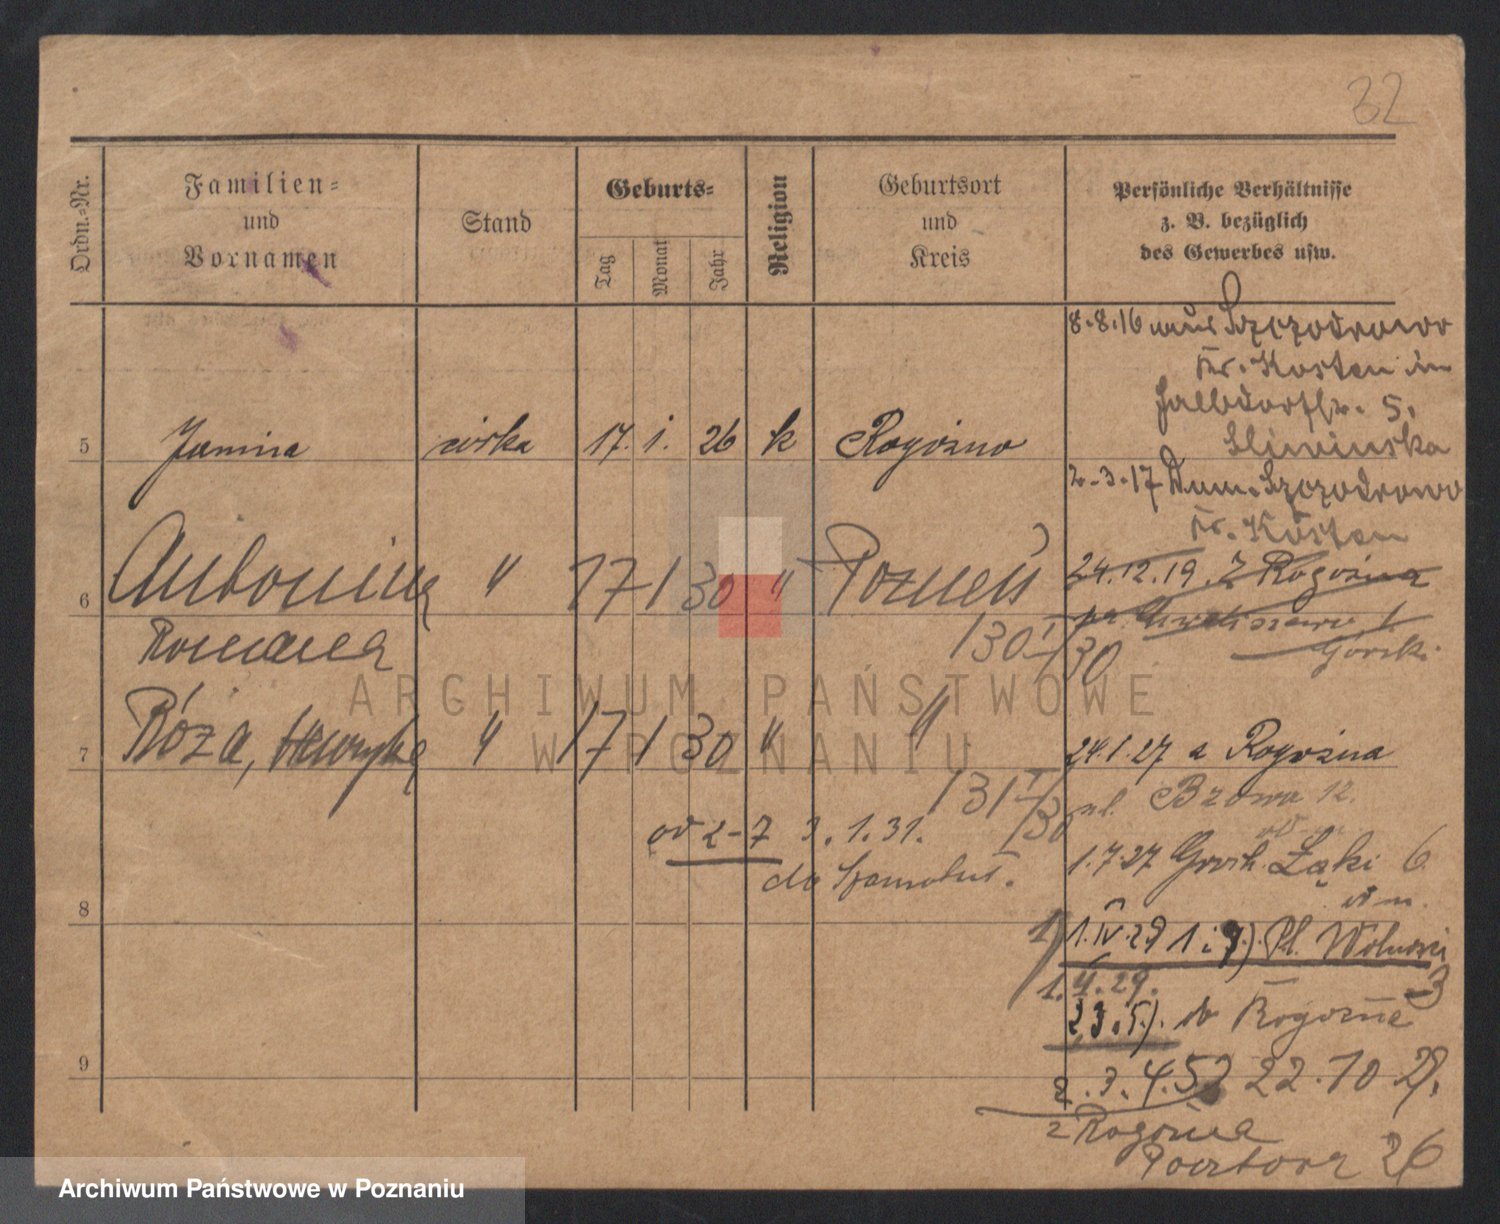 32
Ordn.-Nr.
Familien-
und
Vornamen
Stand
Geburts-
Tag
Monat
Jahr
Religion
Geburtsort
und
Kreis
Persönliche Verhältnisse
z. B. bezüglich
des Gewerbes usw.
8.8.16 aus Szczodrowo
Kr. Kosten in
5.
Sliwinska
5 Janina córka 17. 1. 26 k Rogoźno
2.3.17 Dom. Szczodrowo
Kr. Kosten
6 Antonina " 17 1 30 " Poznań
24.12.19. Z Rogoźna
Górski
Romana
130 I/30
7 Róża, Henryka " 17 1 30 " "
24.1.27 z Rogoźna
131 I/30
ul. 12.
od 2-7 3.1.31.
do Szamotuł.
1.7.27 Grob. Łąki 6
8
1.IV.29 Pl. Wolności
3
1.4.29.
2,3.5.). do Rogoźna
9
2.3.4.5? 22.10 29.
z Rogoźna
26
ARCHIWUM PAŃSTWOWE
W POZNANIU
Archiwum Państwowe w Poznaniu